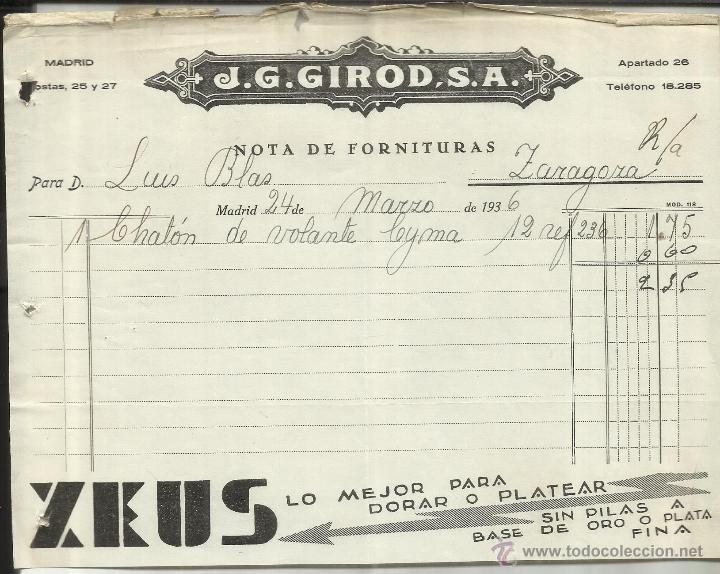 MADRID
ostas, 25 y 27
J. G. GIROD, S. A.
Apartado 26
Teléfono 18.285
NOTA DE FORNITURAS
R/a
Para D. Luis Blas Zaragoza
Madrid 24 de Marzo de 1936
MOD. 118
1 Chatón de volante Cyma 12 ref 236 1.75
0 60
2 35
ZEUS
LO MEJOR PARA
DORAR O PLATEAR
SIN PILAS A
BASE DE ORO O PLATA
FINA
www.todocoleccion.net